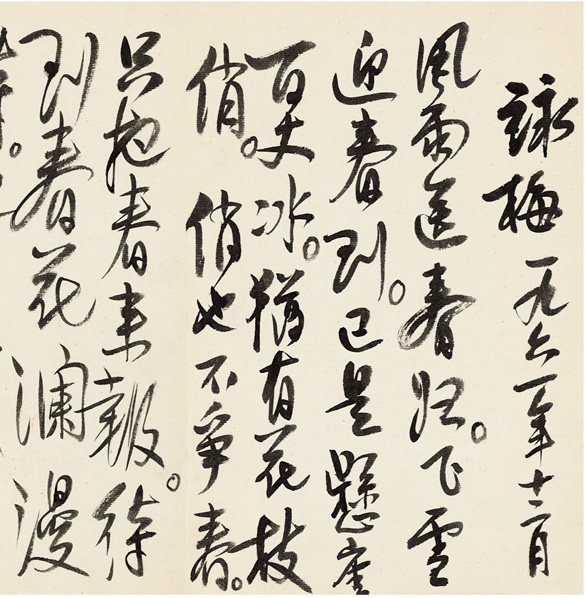 詠梅 一九六一年十二月
風雨送春归。飞雪
迎春到。已是懸崖
百丈冰。猶有花枝
俏。 俏也不爭春。
只把春来報。待
到春花瀾漫